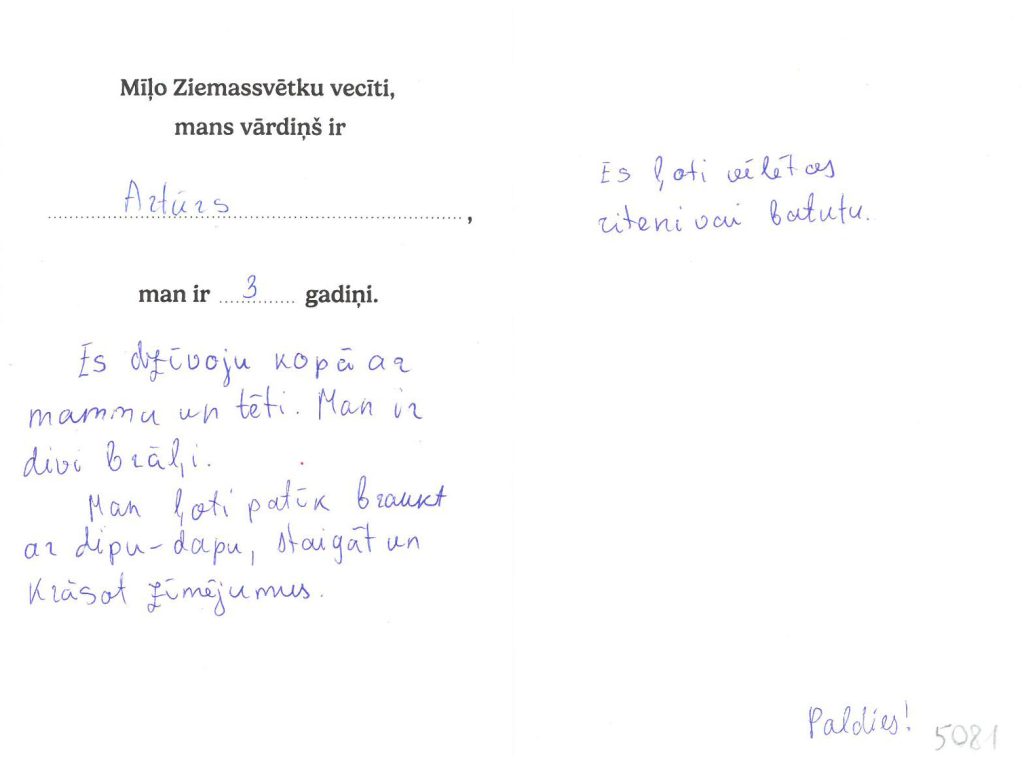 Mīļo Ziemassvētku vecīti,
mans vārdiņš ir
Artūrs,
man ir 3 gadiņi.
Es dzīvoju kopā ar
mammu un tēti. Man ir
divi brāļi.
Man ļoti patīk braukt
ar dipu-dapu, staigāt un
krāsot zīmējumus.
Es ļoti vēlētos
riteni vai batutu.
Paldies!
5081